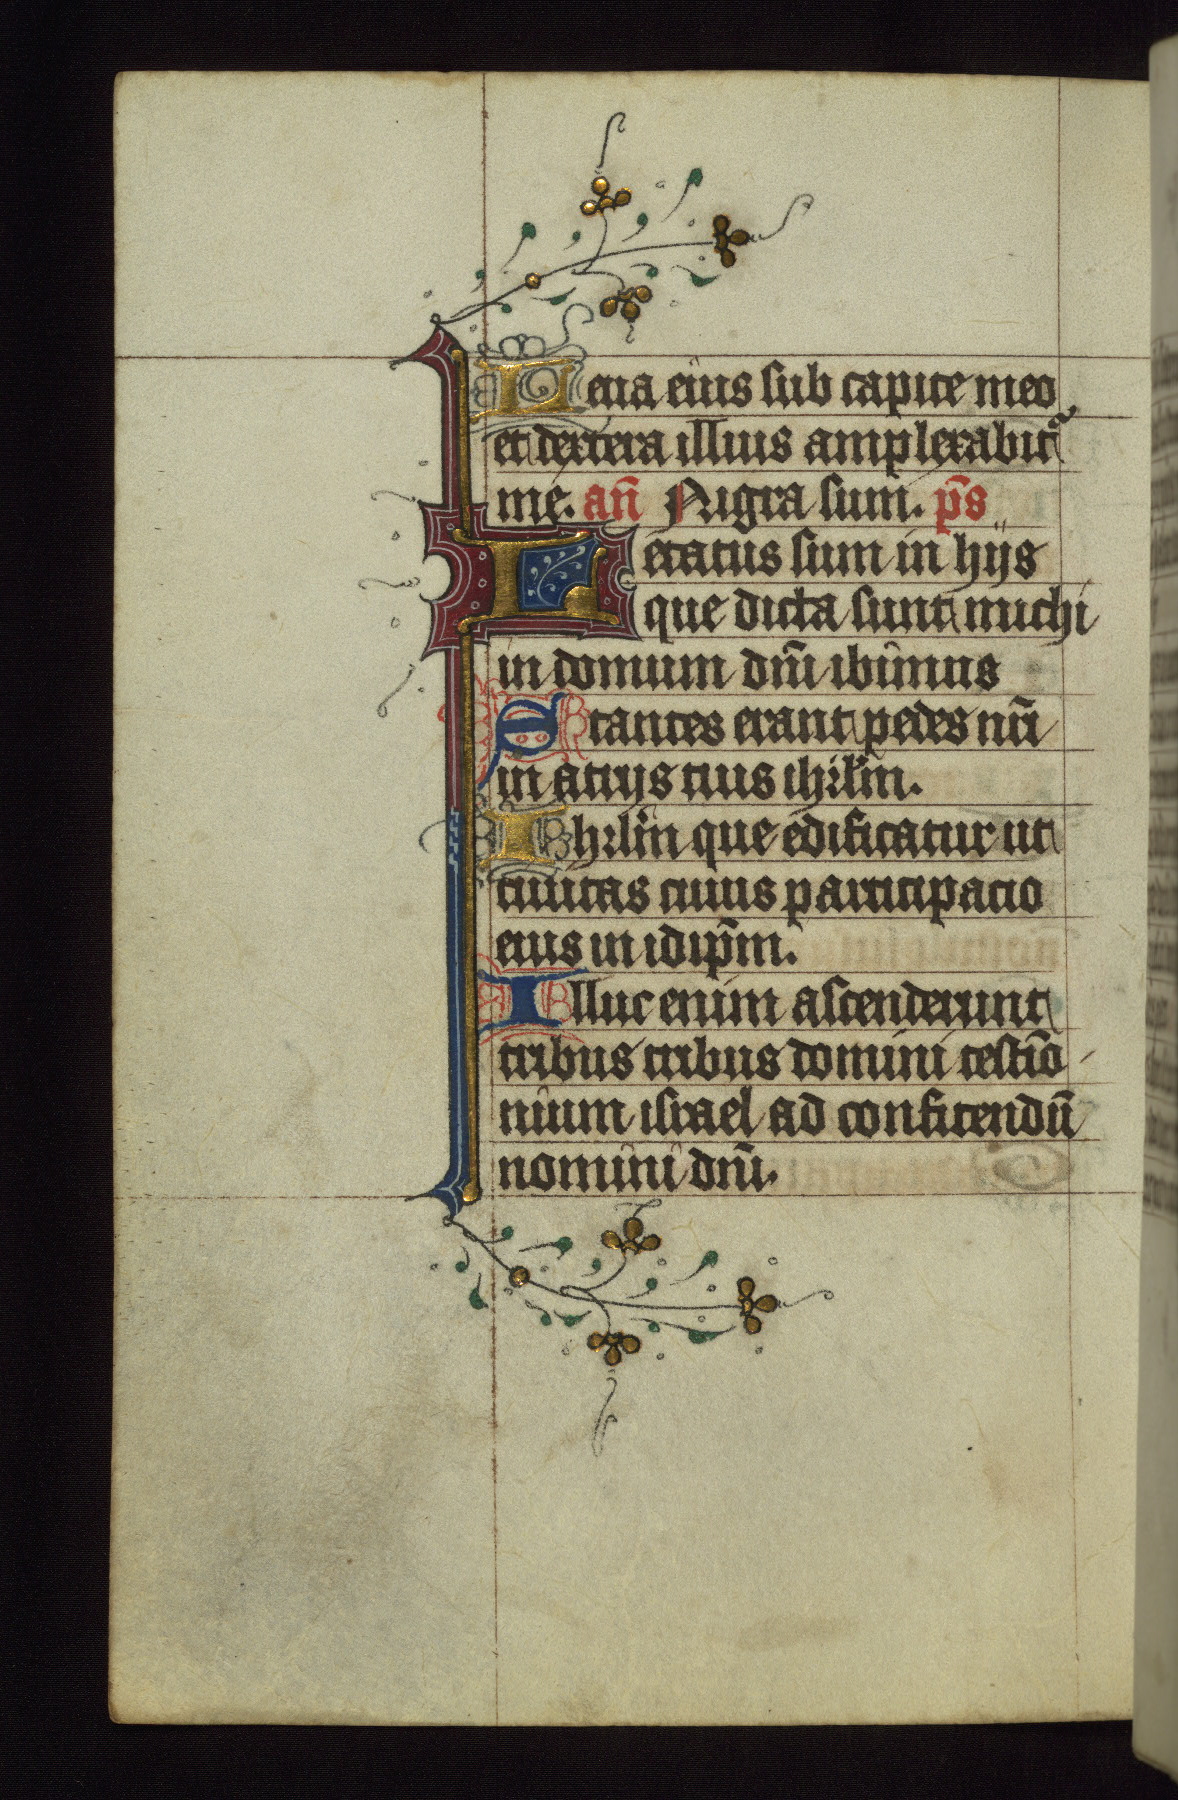 Leua eius sub capite meo
et dextera illius amplexabit᷑
me. an̄ Nigra sum. ps̄
Letatus sum in hijs
que dicta sunt michi
in domum dn̄i ibimus
Stantes erant pedes nr̄i
in atrijs tuis ihrl̄m.
Ihrl̄m que edificatur ut
ciuitas cuius participacio
eius in idip̄m.
Illuc enim ascenderunt
tribus tribus domini testīo
nium israel ad confitendū
nomini dn̄i.